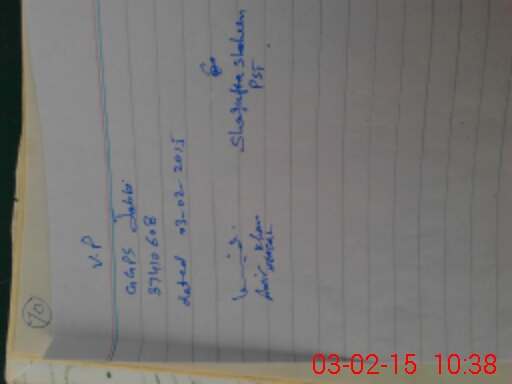 70
V.P
GGPS Jabbi
37410608
dated 03-02-2015
Amir Khan
Shagufta Shaheen
PST
03-02-15 10:38